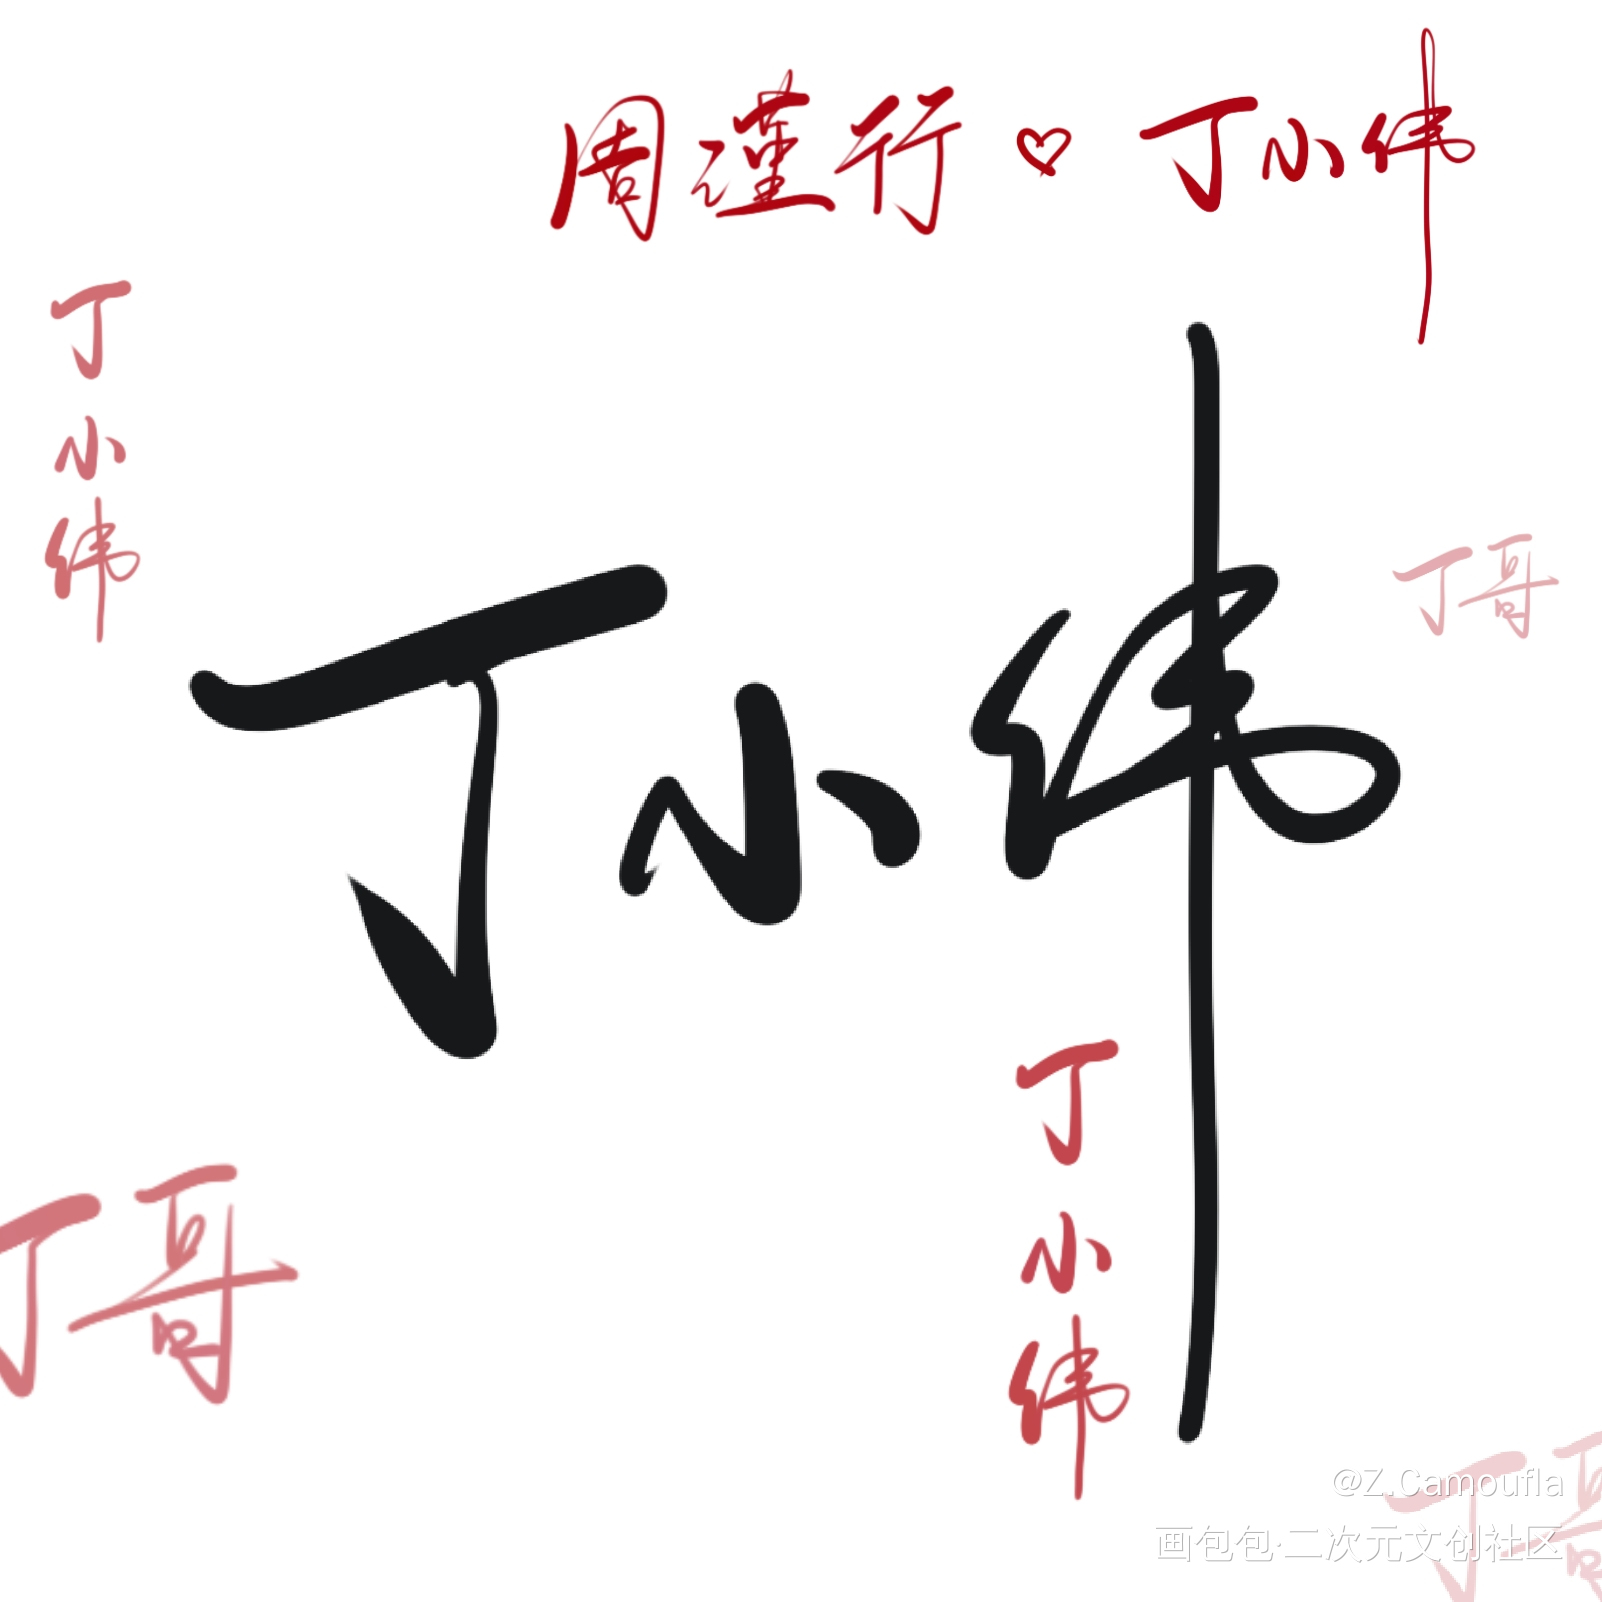 周瑾行♡丁小伟
丁小伟
丁哥
丁小伟
丁小伟
丁哥
丁哥
@Z.Camoufla
画包包·二次元文创社区